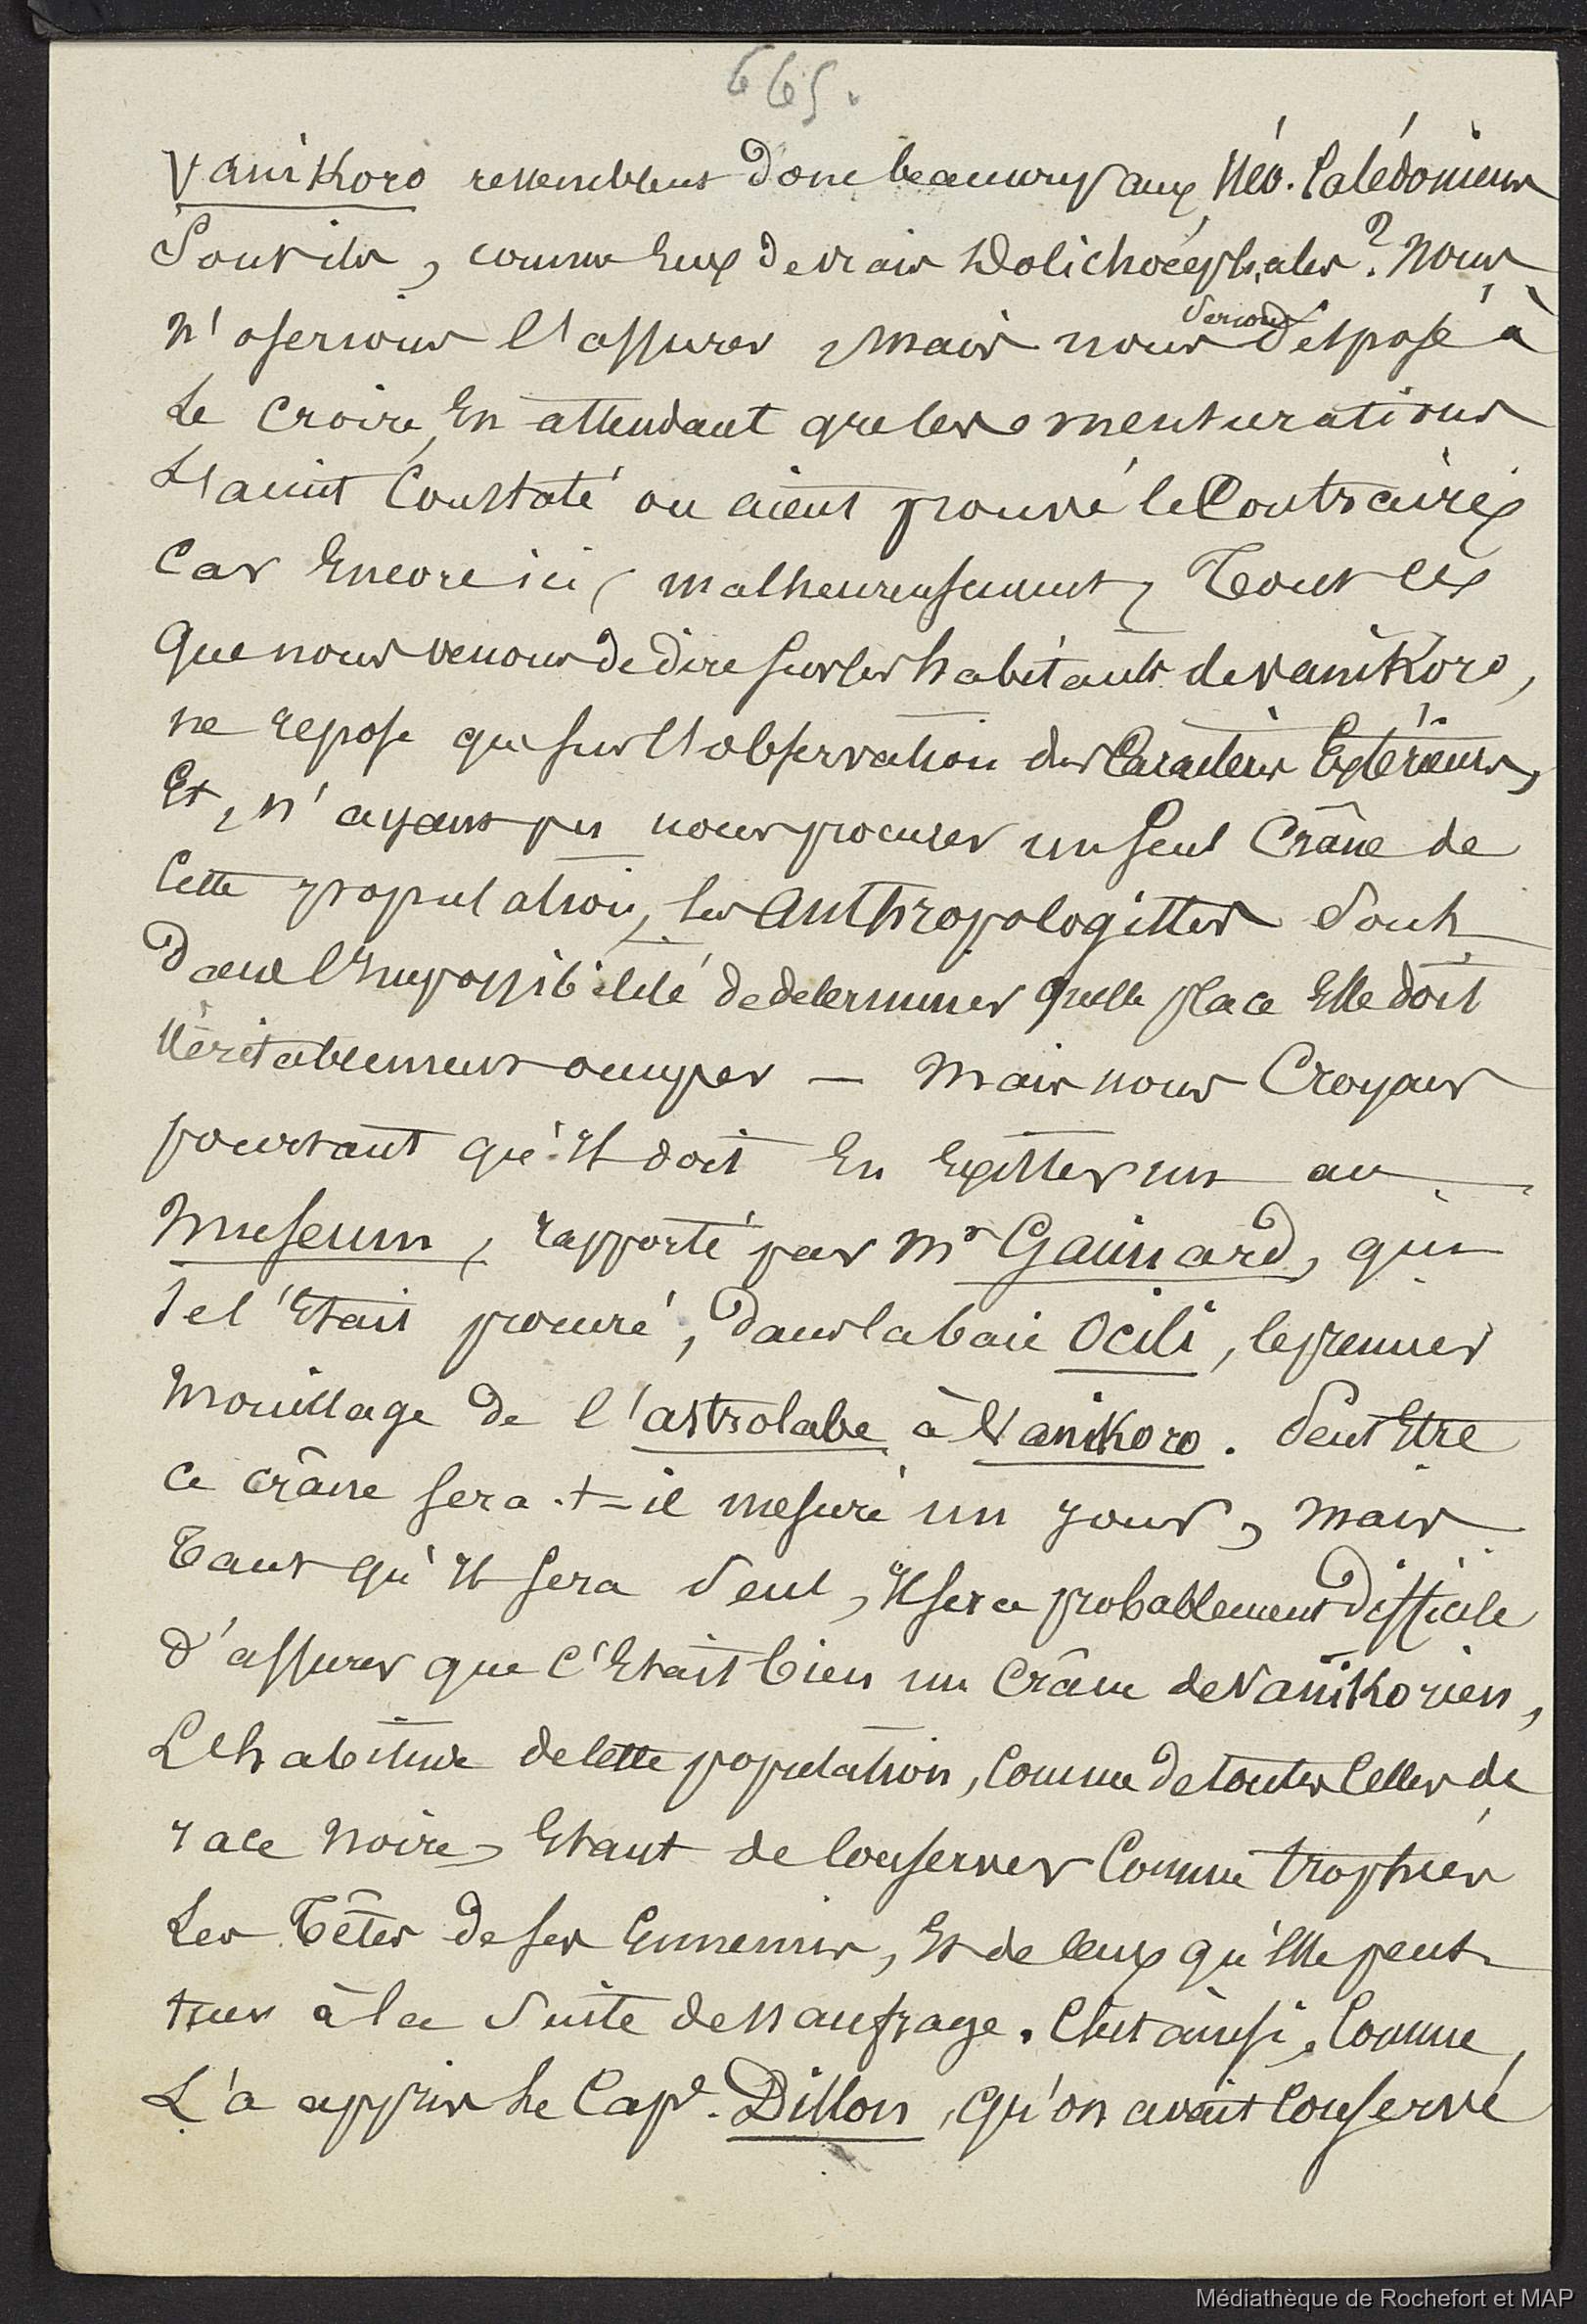 665.
Vanikoro ressemblent donc beaucoup aux Néo-Calédoniens
Sont ils, comme Eux de vrais Dolichocéphales? Nous
n'oserions l'assurer, mais nous serions disposé à
le croire, En attendant que les mensurations
l'aient Constaté ou aient prouvé le Contraire;
Car Encore ici, malheureusement, Tout ce
que nous venons de dire sur les habitants de Vanikoro,
ne repose que sur l'observation des Caractères Extérieurs,
Et, n'ayant pu nous procurer un seul Crâne de
Cette population, les Anthropologistes sont
dans l'Impossibilité de determiner quelle place Elle doit
Véritablement occuper — Mais nous Croyons
pourtant qu'Il doit En Exister un au
Museum, rapporté par Mr Gaimard, qui
se l'Etait procuré, dans la baie Ocili, le premier
Mouillage de l'astrolabe à Vanikoro. Peut Etre
ce crâne sera-t-il mesuré un jour, mais
Tant qu'Il sera seul, Il sera probablement difficile
d'assurer que c'Etait bien un Crâne de Vanikorien,
L'habitude de cette population, Comme de toutes Celles de
race noire, Etant de Conserver Comme trophées
les Têtes de ses Ennemis, Et de ceux qu'Elle peut
tuer à la suite de Naufrage. C'est ainsi, Comme
L'a appris le Cape. Dillon, qu'on avait Conservé
Médiathèque de Rochefort et MAP